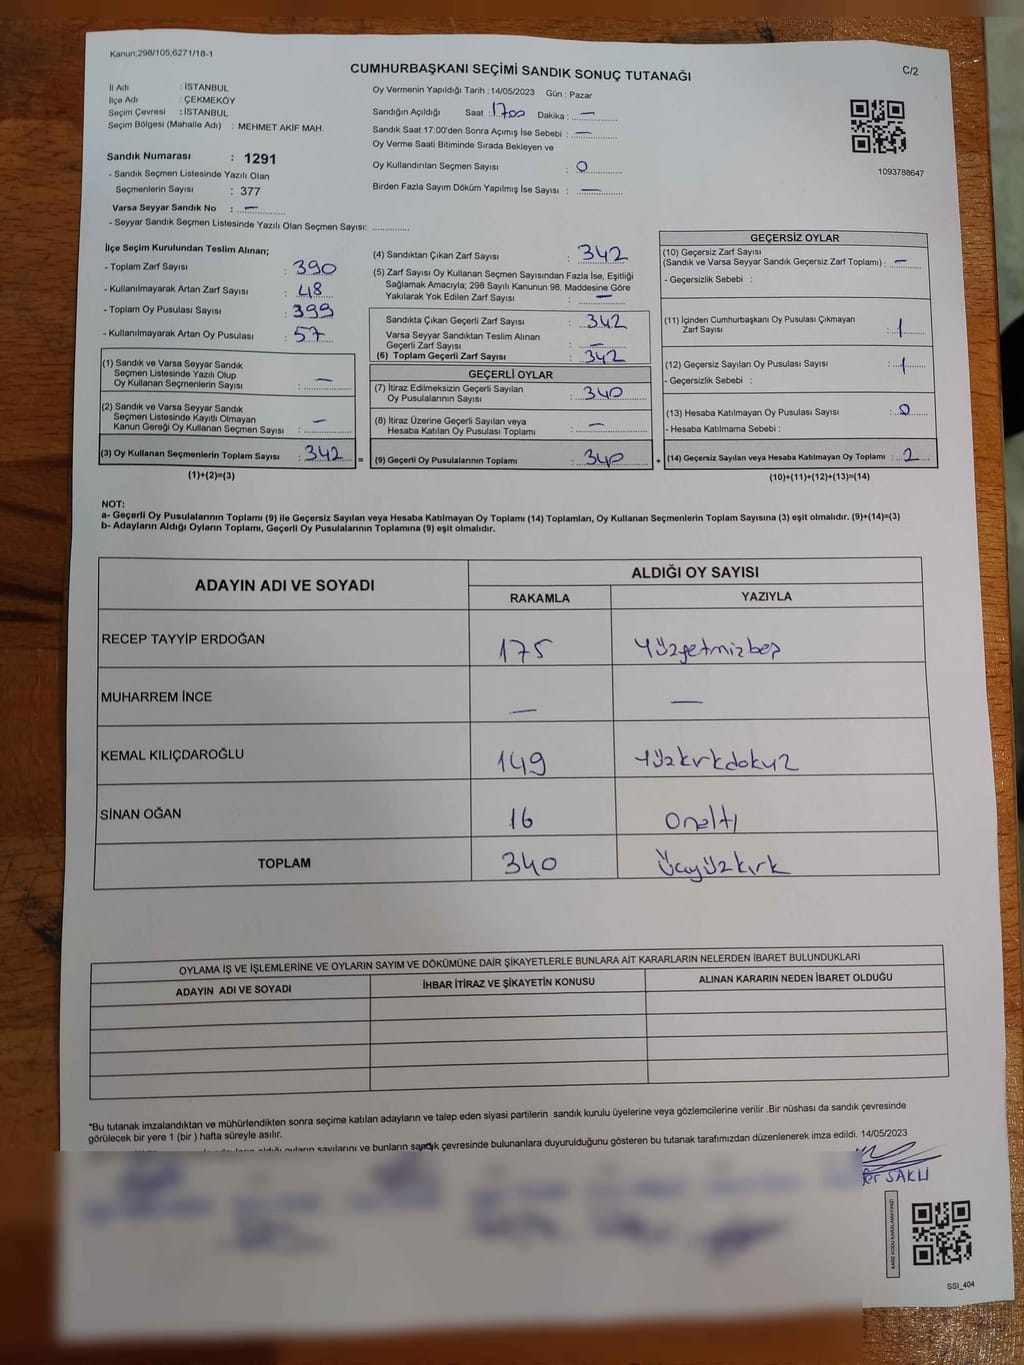 Kanun;298/105;6271/18-1
CUMHURBAŞKANI SEÇİMİ SANDIK SONUÇ TUTANAĞI
C/2
İl Adı : İSTANBUL
İlçe Adı : ÇEKMEKÖY
Seçim Çevresi : İSTANBUL
Seçim Bölgesi (Mahalle Adı) : MEHMET AKİF MAH.
Sandık Numarası : 1291
- Sandık Seçmen Listesinde Yazılı Olan
Seçmenlerin Sayısı : 377
Varsa Seyyar Sandık No : —
- Seyyar Sandık Seçmen Listesinde Yazılı Olan Seçmen Sayısı: ..............
Oy Vermenin Yapıldığı Tarih : 14/05/2023 Gün : Pazar
Sandığın Açıldığı Saat : 1700 Dakika : —
Sandık Saat 17:00'den Sonra Açımış İse Sebebi : —
Oy Verme Saati Bitiminde Sırada Bekleyen ve
Oy Kullandırılan Seçmen Sayısı : 0
Birden Fazla Sayım Döküm Yapılmış İse Sayısı : —
1093788647
İlçe Seçim Kurulundan Teslim Alınan;
- Toplam Zarf Sayısı : 390
- Kullanılmayarak Artan Zarf Sayısı : 48
- Toplam Oy Pusulası Sayısı : 399
- Kullanılmayarak Artan Oy Pusulası : 57
(1) Sandık ve Varsa Seyyar Sandık
Seçmen Listesinde Yazılı Olup
Oy Kullanan Seçmenlerin Sayısı : —
(2) Sandık ve Varsa Seyyar Sandık
Seçmen Listesinde Kayıtlı Olmayan
Kanun Gereği Oy Kullanan Seçmen Sayısı : —
(3) Oy Kullanan Seçmenlerin Toplam Sayısı : 342 =
(1)+(2)=(3)
(4) Sandıktan Çıkan Zarf Sayısı : 342
(5) Zarf Sayısı Oy Kullanan Seçmen Sayısından Fazla İse, Eşitliği
Sağlamak Amacıyla; 298 Sayılı Kanunun 98. Maddesine Göre
Yakılarak Yok Edilen Zarf Sayısı : —
Sandıkta Çıkan Geçerli Zarf Sayısı : 342
Varsa Seyyar Sandıktan Teslim Alınan
Geçerli Zarf Sayısı : —
(6) Toplam Geçerli Zarf Sayısı : 342
GEÇERLİ OYLAR
(7) İtiraz Edilmeksizin Geçerli Sayılan
Oy Pusulalarının Sayısı : 340
(8) İtiraz Üzerine Geçerli Sayılan veya
Hesaba Katılan Oy Pusulası Toplamı : —
(9) Geçerli Oy Pusulalarının Toplamı : 340 +
GEÇERSİZ OYLAR
(10) Geçersiz Zarf Sayısı
(Sandık ve Varsa Seyyar Sandık Geçersiz Zarf Toplamı) : —
- Geçersizlik Sebebi :
(11) İçinden Cumhurbaşkanı Oy Pusulası Çıkmayan
Zarf Sayısı : 1
(12) Geçersiz Sayılan Oy Pusulası Sayısı : 1
- Geçersizlik Sebebi :
(13) Hesaba Katılmayan Oy Pusulası Sayısı : 0
- Hesaba Katılmama Sebebi :
(14) Geçersiz Sayılan veya Hesaba Katılmayan Oy Toplamı : 2
(10)+(11)+(12)+(13)=(14)
NOT:
a- Geçerli Oy Pusulalarının Toplamı (9) ile Geçersiz Sayılan veya Hesaba Katılmayan Oy Toplamı (14) Toplamları, Oy Kullanan Seçmenlerin Toplam Sayısına (3) eşit olmalıdır. (9)+(14)=(3)
b- Adayların Aldığı Oyların Toplamı, Geçerli Oy Pusulalarının Toplamına (9) eşit olmalıdır.
ADAYIN ADI VE SOYADI ALDIĞI OY SAYISI
RAKAMLA YAZIYLA
RECEP TAYYİP ERDOĞAN 175 Yüzyetmizbeş
MUHARREM İNCE — —
KEMAL KILIÇDAROĞLU 149 Yüzkırkdokuz
SİNAN OĞAN 16 Onaltı
TOPLAM 340 Üçyüzkırk
OYLAMA İŞ VE İŞLEMLERİNE VE OYLARIN SAYIM VE DÖKÜMÜNE DAİR ŞİKAYETLERLE BUNLARA AİT KARARLARIN NELERDEN İBARET BULUNDUKLARI
ADAYIN ADI VE SOYADI İHBAR İTİRAZ VE ŞİKAYETİN KONUSU ALINAN KARARIN NEDEN İBARET OLDUĞU
*Bu tutanak imzalandıktan ve mühürlendikten sonra seçime katılan adayların ve talep eden siyasi partilerin sandık kurulu üyelerine veya gözlemcilerine verilir .Bir nüshası da sandık çevresinde
görülecek bir yere 1 (bir ) hafta süreyle asılır.
aldığı oyların sayılarını ve bunların sandık çevresinde bulunanlara duyurulduğunu gösteren bu tutanak tarafımızdan düzenlenerek imza edildi. 14/05/2023
SAKLI
KARE KODU KARALAMAYINIZ!
SSI_404